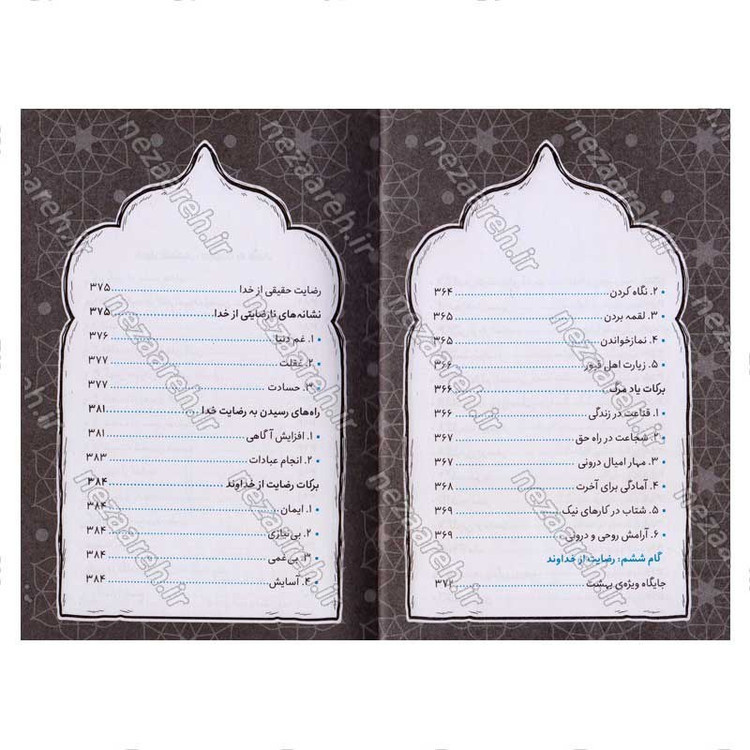 ۲. نگاه کردن ۳۶۴
۳. لقمه بردن ۳۶۵
۴. نمازخواندن ۳۶۵
۵. زیارت اهل قبور ۳۶۶
برکات یاد مرگ ۳۶۶
۱. قناعت در زندگی ۳۶۶
۲. شجاعت در راه حق ۳۶۷
۳. مهار امیال درونی ۳۶۷
۴. آمادگی برای آخرت ۳۶۸
۵. شتاب در کارهای نیک ۳۶۹
۶. آرامش روحی و درونی ۳۶۹
گام ششم: رضایت از خداوند
جایگاه ویژه‌ی بهشت ۳۷۲
رضایت حقیقی از خدا ۳۷۵
نشانه‌های نارضایتی از خدا ۳۷۵
۱. غم دنیا ۳۷۶
۲. غفلت ۳۷۷
۳. حسادت ۳۷۷
راه‌های رسیدن به رضایت خدا ۳۸۱
۱. افزایش آگاهی ۳۸۱
۲. انجام عبادات ۳۸۳
برکات رضایت از خداوند ۳۸۴
۱. ایمان ۳۸۴
۲. بی‌نیازی ۳۸۴
۳. بی‌غمی ۳۸۴
۴. آسایش ۳۸۴
nezaareh.ir